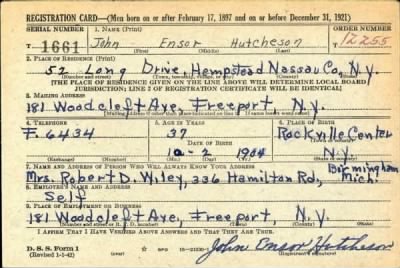 REGISTRATION CARD—(Men born on or after February 17, 1897 and on or before December 31, 1921)
SERIAL NUMBER 1. NAME (Print) ORDER NUMBER
T 1661 John Ensor Hutcheson 12255
(First) (Middle) (Last)
2. PLACE OF RESIDENCE (Print)
52 Long Drive, Hempstead Nassau Co, N.Y.
(Number and street) (Town, township, village, or city) (County) (State)
[THE PLACE OF RESIDENCE GIVEN ON THE LINE ABOVE WILL DETERMINE LOCAL BOARD
JURISDICTION; LINE 2 OF REGISTRATION CERTIFICATE WILL BE IDENTICAL]
3. MAILING ADDRESS
181 Woodcleft Ave, Freeport, N.Y.
(Mailing address if other than place indicated on line 2. If same insert word same)
4. TELEPHONE 5. AGE IN YEARS 6. PLACE OF BIRTH
F. 6434 37 Rockville Center
DATE OF BIRTH (Town or county)
10-2 1904 N.Y.
(Exchange) (Number) (Mo.) (Day) (Yr.) (State or country)
7. NAME AND ADDRESS OF PERSON WHO WILL ALWAYS KNOW YOUR ADDRESS Birmingham
Mrs. Robert D. Wiley, 336 Hamilton Rd, Mich.
8. EMPLOYER'S NAME AND ADDRESS
Self
9. PLACE OF EMPLOYMENT OR BUSINESS
181 Woodcleft Ave, Freeport, N.Y.
(Number and street or R. F. D. number) (Town) (County) (State)
I AFFIRM THAT I HAVE VERIFIED ABOVE ANSWERS AND THAT THEY ARE TRUE.
D. S. S. Form 1
(Revised 1-1-42) John Ensor Hutcheson